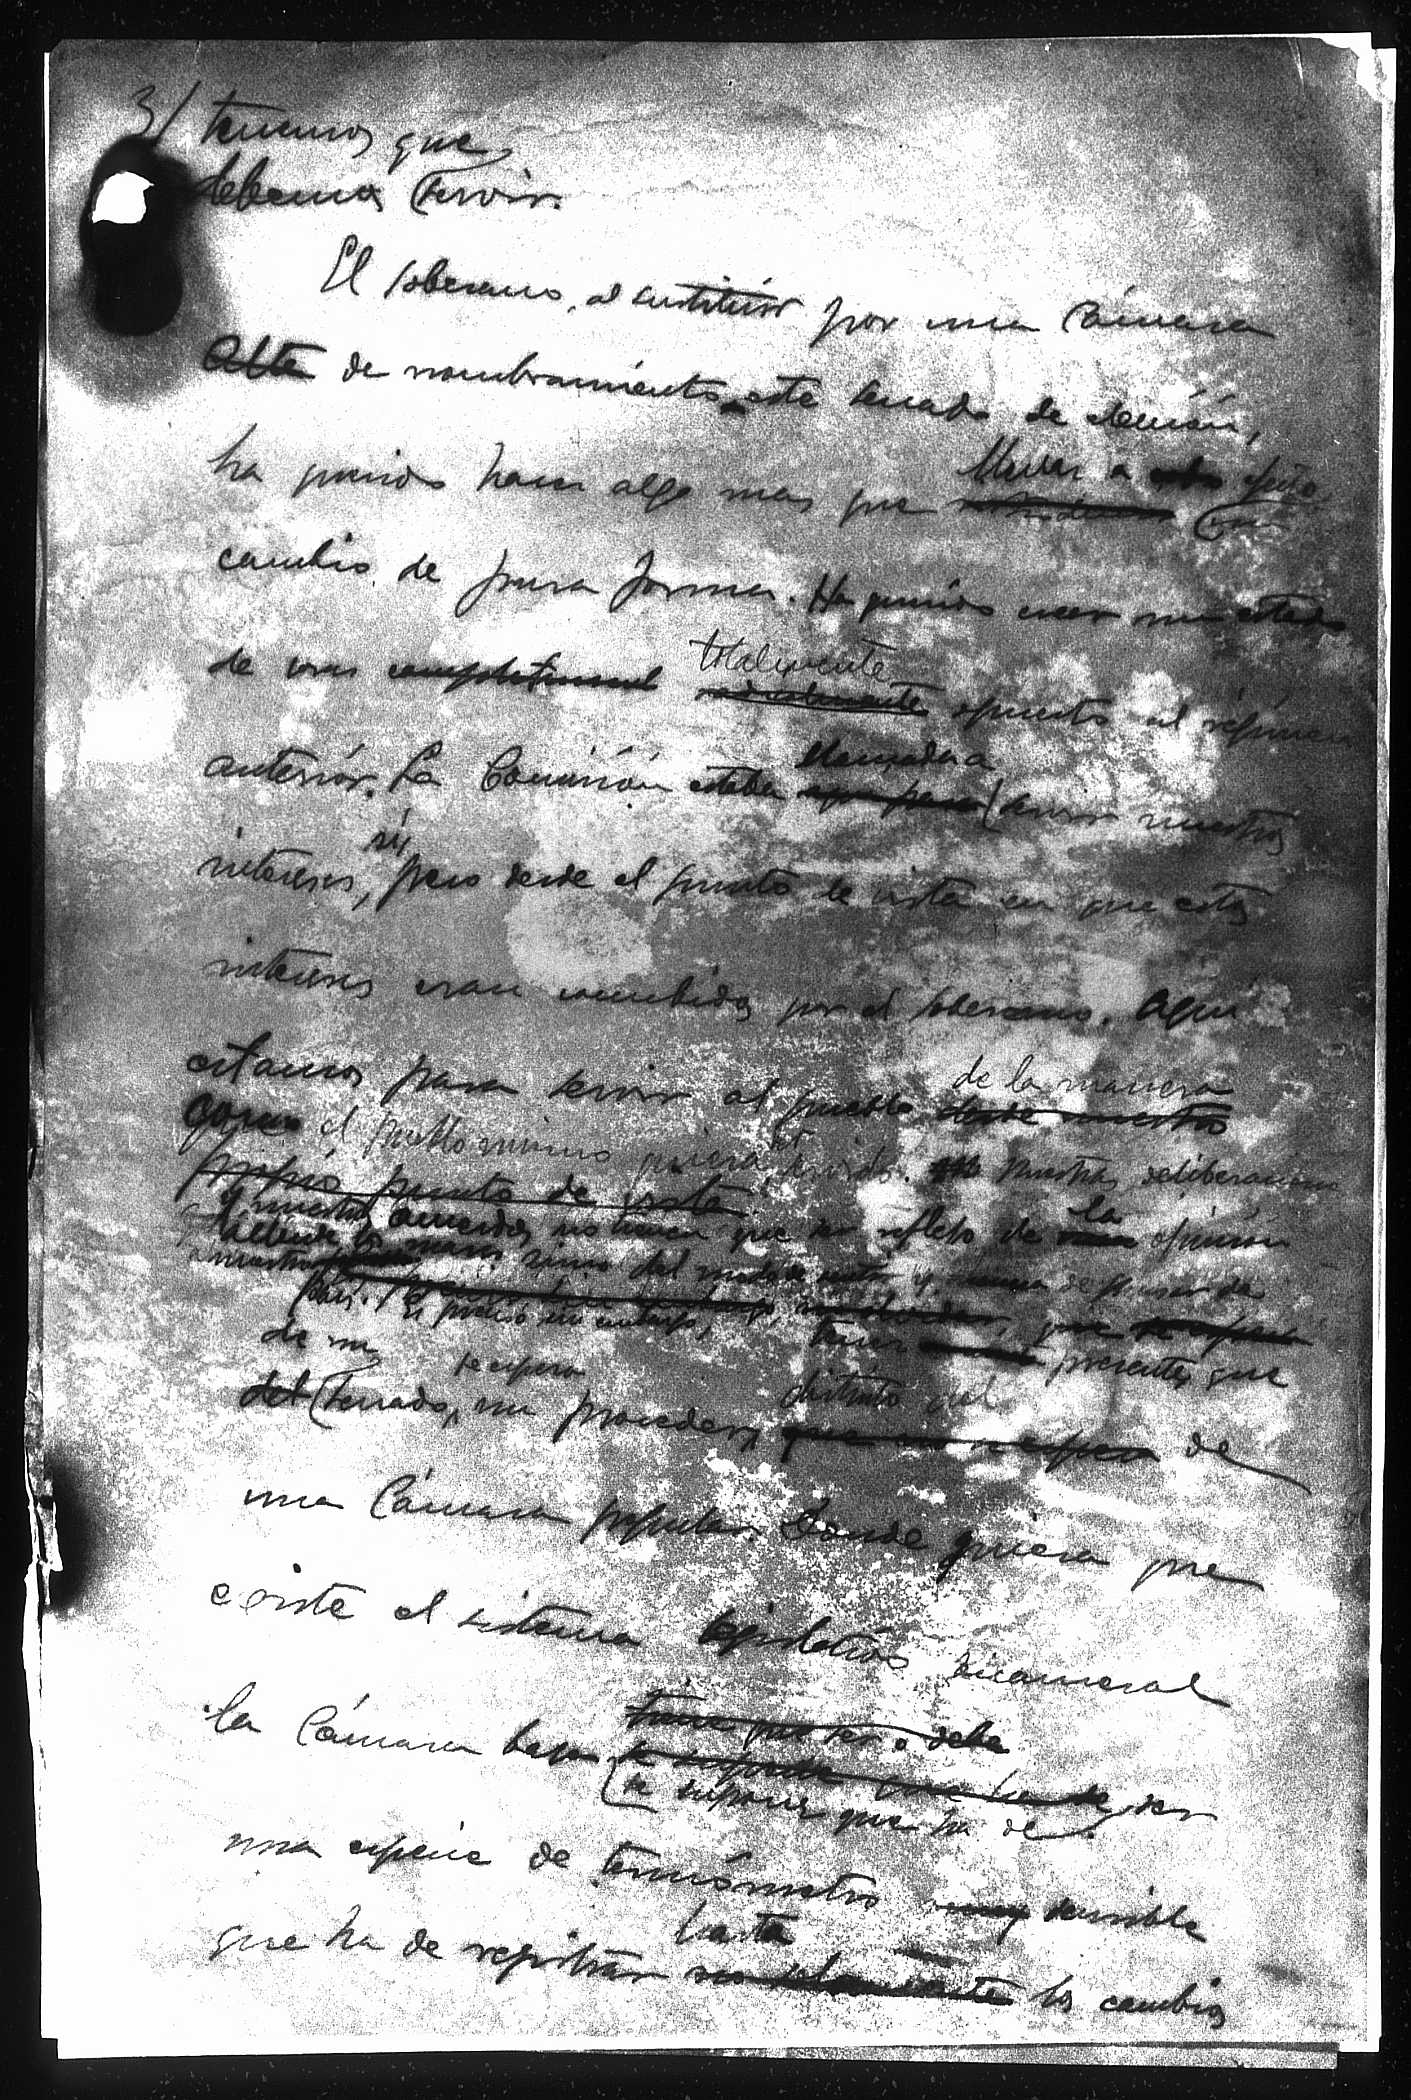 3/ tenemos que
debemos servir.
El soberano, al sustituir por una Cámara
Alta de nombramiento este Senado de elección,
ha querido hacer algo mas que llevar a efecto un
cambio de pura forma. Ha querido crear un estado
de cosas completamente totalmente opuesto al régimen
anterior. La Comisión estaba llamada a servir nuestros
intereses, sí, pero desde el punto de vista en que estos
intereses eran concebidos por el soberano. Aquí
estamos para servir al pueblo desde nuestro de la manera
como el pueblo mismo quiera ser servido. Nuestras deliberaciones
propio punto de vista.
y nuestros acuerdos no tienen que ser reflejo de la opinión
sino del modo de sentir y de pensar de
nuestro
país. Es preciso sin embargo, tener presente, que
de un
del Senado, se espera un proceder, distinto del de
una Cámara popular. Donde quiera que
existe el sistema legislativo bicameral
la Cámara baja tiene que ser o debe
se supone que ha de ser
una especie de termómetro muy sensible
que ha de registrar hasta los cambios